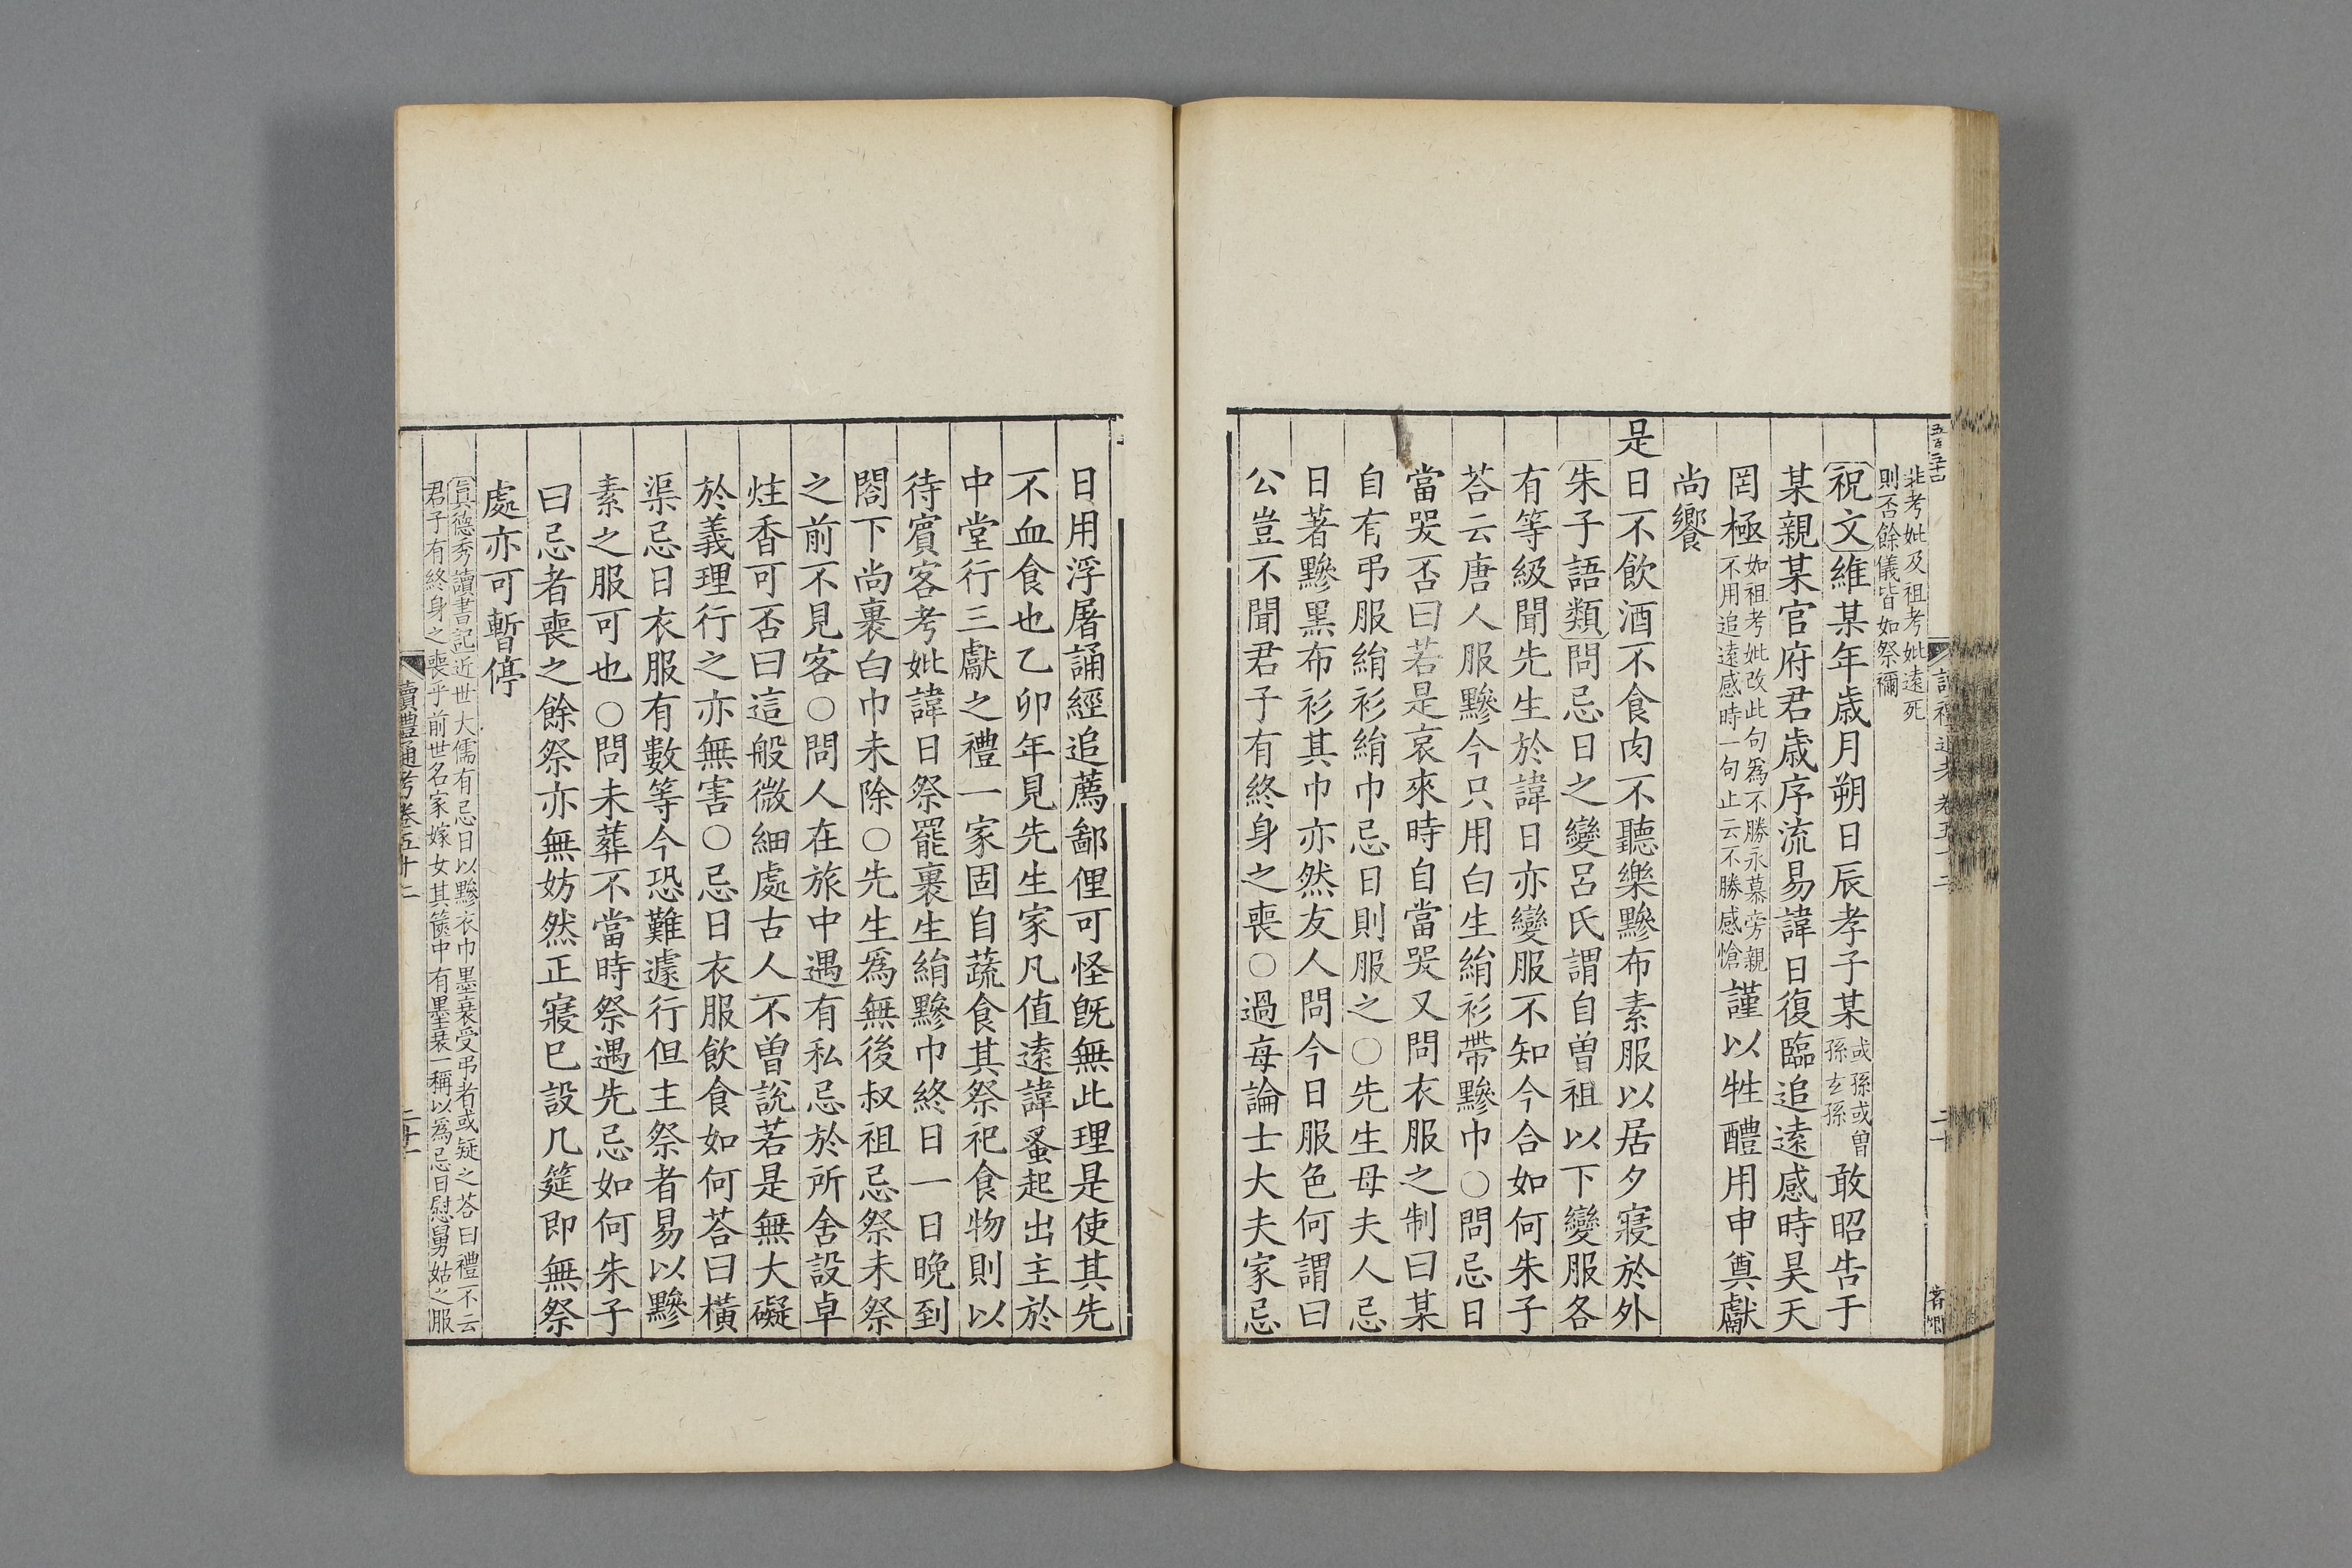 非考妣及祖考妣遠死
則否餘儀皆如祭禰
祝文維某年歲月朔日辰孝子某或孫或曾孫玄孫敢昭告于
某親某官府君歲序流易諱日復臨追遠感時昊天
罔極如祖考妣改此句爲不勝永慕旁親不用追遠感時一句止云不勝感愴謹以牲醴用申奠獻
尚饗
是日不飲酒不食肉不聽樂黲布素服以居夕寢於外
朱子語類問忌日之變呂氏謂自曾祖以下變服各
有等級聞先生於諱日亦變服不知今合如何朱子
荅云唐人服黲今只用白生絹衫帶黲巾○問忌日
當哭否曰若是哀來時自當哭又問衣服之制曰某
自有弔服絹衫絹巾忌日則服之○先生母夫人忌
日著黲黑布衫其巾亦然友人問今日服色何謂曰
公豈不聞君子有終身之喪○過每論士大夫家忌
日用浮屠誦經追薦鄙俚可怪旣無此理是使其先
不血食也乙卯年見先生家凡值遠諱蚤起出主於
中堂行三獻之禮一家固自蔬食其祭祀食物則以
待賓客考妣諱日祭罷裹生絹黲巾終日一日晚到
閤下尚裹白巾未除○先生爲無後叔祖忌祭未祭
之前不見客○問人在旅中遇有私忌於所舍設卓
炷香可否曰這般微細處古人不曾說若是無大礙
於義理行之亦無害○忌日衣服飲食如何荅曰橫
渠忌日衣服有數等今恐難遽行但主祭者易以黲
素之服可也○問未葬不當時祭遇先忌如何朱子
曰忌者喪之餘祭亦無妨然正寢已設几筵即無祭
處亦可暫停
眞德秀讀書記近世大儒有忌日以黲衣巾墨衰受弔者或疑之荅曰禮不云
君子有終身之喪乎前世名家嫁女其篋中有墨衰一稱以爲忌日慰舅姑之服
讀禮通考卷五十二
二十一